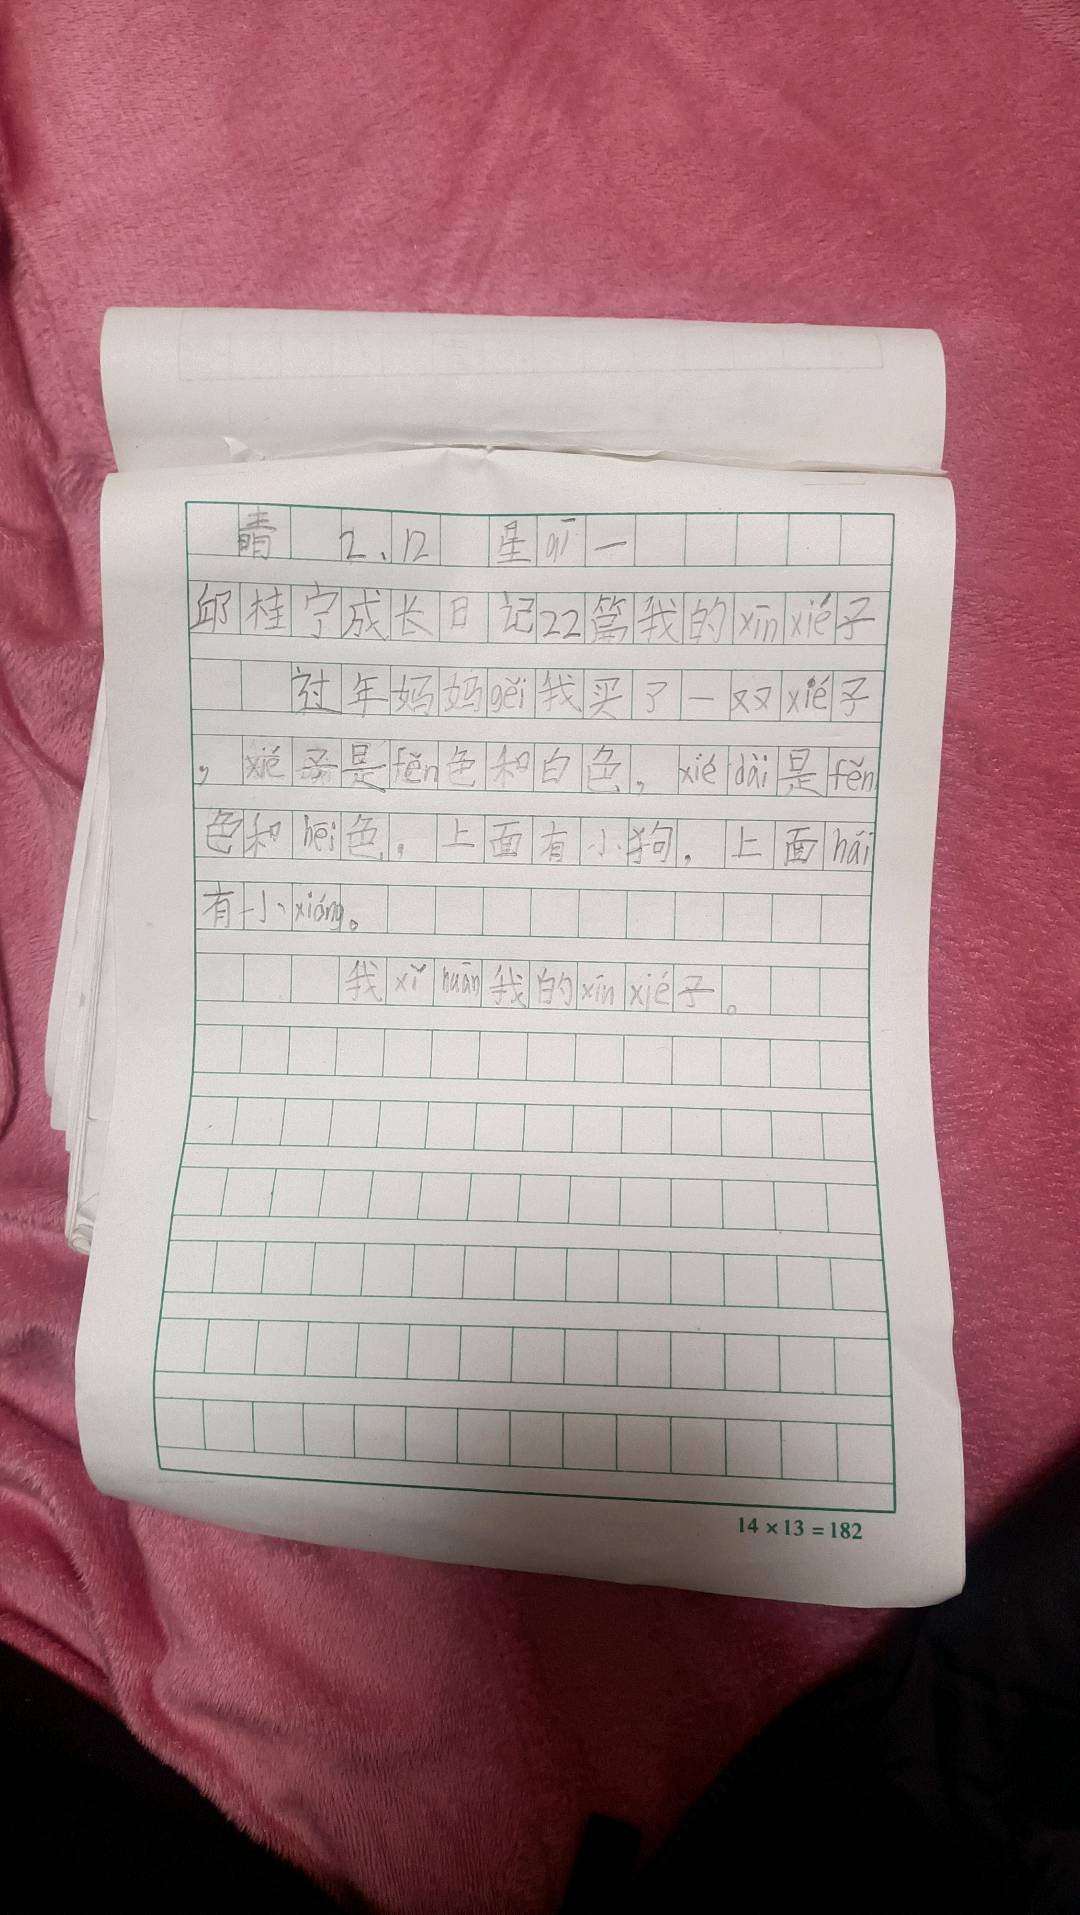 晴 2、12 星qī一
邱桂宁成长日记22篇我的xīnxié子
过年妈妈gěi我买了一双xié子
，xié子是fěn色和白色，xiédài是fěn
色和hēi色。上面有小狗。上面hái
有小xióng。
我xǐhuān我的xīnxié子。
14×13=182